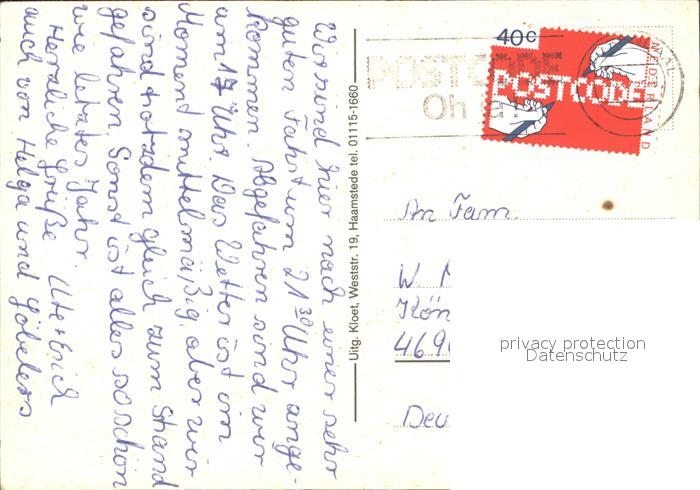 Wir sind hier nach einer sehr
guten Fahrt um 21³⁰ Uhr ange-
kommen. Abgefahren sind wir
am 17 Uhr. Das Wetter ist im
Moment mittelmäßig, aber wir
sind trotzdem gleich zum Strand
gefahren. Sonst ist alles so schön
wie letztes Jahr.
Herzliche Grüße Ute + Erich
auch von Helga und Göbelers
Uitg. Kloet, Weststr. 19, Haamstede tel. 01115-1660
40c
POSTCODE
NEDERLAND
POSTCODE
An Fam.
W
Kön
469
Deu
privacy protection
Datenschutz